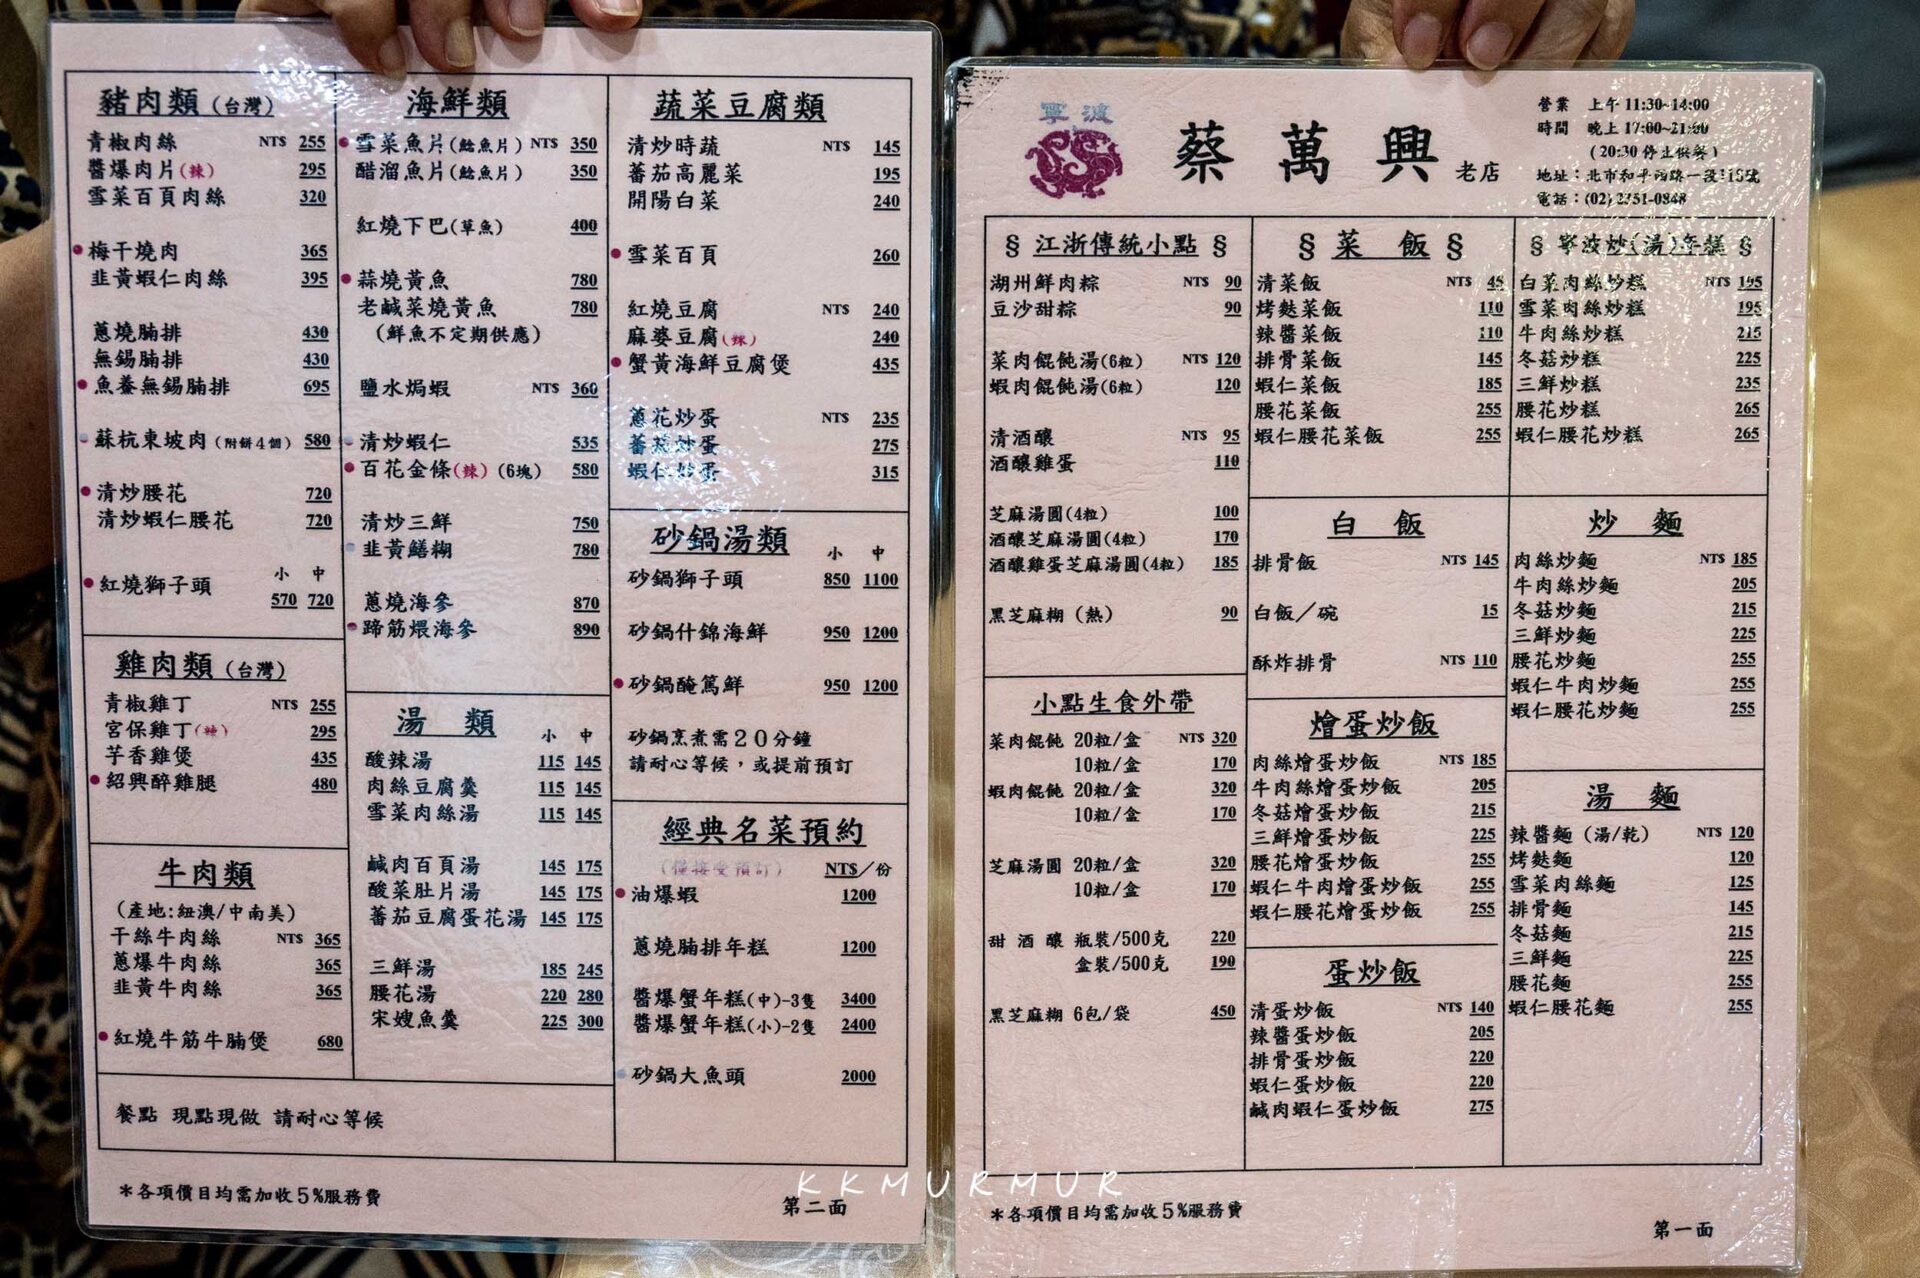 豬肉類（台灣）
青椒肉絲 NT$ 255
醬爆肉片(辣) 295
雪菜百頁肉絲 320
梅干燒肉 365
韭黃蝦仁肉絲 395
蔥燒腩排 430
無錫腩排 430
魚鯗無錫腩排 695
蘇杭東坡肉(附餅4個) 580
清炒腰花 720
清炒蝦仁腰花 720
小 中
紅燒獅子頭 570 720
雞肉類（台灣）
青椒雞丁 NT$ 255
宮保雞丁(辣) 295
芋香雞煲 435
紹興醉雞腿 480
牛肉類
（產地:紐澳/中南美）
干絲牛肉絲 NT$ 365
蔥爆牛肉絲 365
韭黃牛肉絲 365
紅燒牛筋牛腩煲 680
餐點 現點現做 請耐心等候
*各項價目均需加收5%服務費
海鮮類
雪菜魚片(鯰魚片) NT$ 350
醋溜魚片(鯰魚片) 350
紅燒下巴(草魚) 400
蒜燒黃魚 780
老鹹菜燒黃魚 780
（鮮魚不定期供應）
鹽水焗蝦 NT$ 360
清炒蝦仁 535
百花金條(辣)(6塊) 580
清炒三鮮 750
韭黃鱔糊 780
蔥燒海參 870
蹄筋煨海參 890
湯 類
小 中
酸辣湯 115 145
肉絲豆腐羹 115 145
雪菜肉絲湯 115 145
鹹肉百頁湯 145 175
酸菜肚片湯 145 175
蕃茄豆腐蛋花湯 145 175
三鮮湯 185 245
腰花湯 220 280
宋嫂魚羹 225 300
蔬菜豆腐類
清炒時蔬 NT$ 145
蕃茄高麗菜 195
開陽白菜 240
雪菜百頁 260
紅燒豆腐 NT$ 240
麻婆豆腐(辣) 240
蟹黃海鮮豆腐煲 435
蔥花炒蛋 NT$ 235
蕃茄炒蛋 275
蝦仁炒蛋 315
砂鍋湯類 小 中
砂鍋獅子頭 850 1100
砂鍋什錦海鮮 950 1200
砂鍋醃篤鮮 950 1200
砂鍋烹煮需２０分鐘
請耐心等候，或提前預訂
經典名菜預約
(僅接受預訂) NT$／份
油爆蝦 1200
蔥燒腩排年糕 1200
醬爆蟹年糕(中)-3隻 3400
醬爆蟹年糕(小)-2隻 2400
砂鍋大魚頭 2000
第二面
寧波
蔡萬興 老店
營業 上午 11:30~14:00
時間 晚上 17:00~21:00
(20:30 停止供餐)
地址：北市和平西路一段116號
電話：(02) 2351-0848
§ 江浙傳統小點 §
湖州鮮肉粽 NT$ 90
豆沙甜粽 90
菜肉餛飩湯(6粒) NT$ 120
蝦肉餛飩湯(6粒) 120
清酒釀 NT$ 95
酒釀雞蛋 110
芝麻湯圓(4粒) 100
酒釀芝麻湯圓(4粒) 170
酒釀雞蛋芝麻湯圓(4粒) 185
黑芝麻糊（熱） 90
小點生食外帶
菜肉餛飩 20粒/盒 NT$ 320
10粒/盒 170
蝦肉餛飩 20粒/盒 320
10粒/盒 170
芝麻湯圓 20粒/盒 320
10粒/盒 170
甜 酒 釀 瓶裝/500克 220
盒裝/500克 190
黑芝麻糊 6包/袋 450
*各項價目均需加收5%服務費
§ 菜 飯 §
清菜飯 NT$ 45
烤麩菜飯 110
辣醬菜飯 110
排骨菜飯 145
蝦仁菜飯 185
腰花菜飯 255
蝦仁腰花菜飯 255
白 飯
排骨飯 NT$ 145
白飯／碗 15
酥炸排骨 NT$ 110
燴蛋炒飯
肉絲燴蛋炒飯 NT$ 185
牛肉絲燴蛋炒飯 205
冬菇燴蛋炒飯 215
三鮮燴蛋炒飯 225
腰花燴蛋炒飯 255
蝦仁牛肉燴蛋炒飯 255
蝦仁腰花燴蛋炒飯 255
蛋炒飯
清蛋炒飯 NT$ 140
辣醬蛋炒飯 205
排骨蛋炒飯 220
蝦仁蛋炒飯 220
鹹肉蝦仁蛋炒飯 275
§ 寧波炒(湯)年糕 §
白菜肉絲炒糕 NT$ 195
雪菜肉絲炒糕 195
牛肉絲炒糕 215
冬菇炒糕 225
三鮮炒糕 235
腰花炒糕 265
蝦仁腰花炒糕 265
炒 麵
肉絲炒麵 NT$ 185
牛肉絲炒麵 205
冬菇炒麵 215
三鮮炒麵 225
腰花炒麵 255
蝦仁牛肉炒麵 255
蝦仁腰花炒麵 255
湯 麵
辣醬麵（湯/乾） NT$ 120
烤麩麵 120
雪菜肉絲麵 125
排骨麵 145
冬菇麵 215
三鮮麵 225
腰花麵 255
蝦仁腰花麵 255
第一面
KKMURMUR